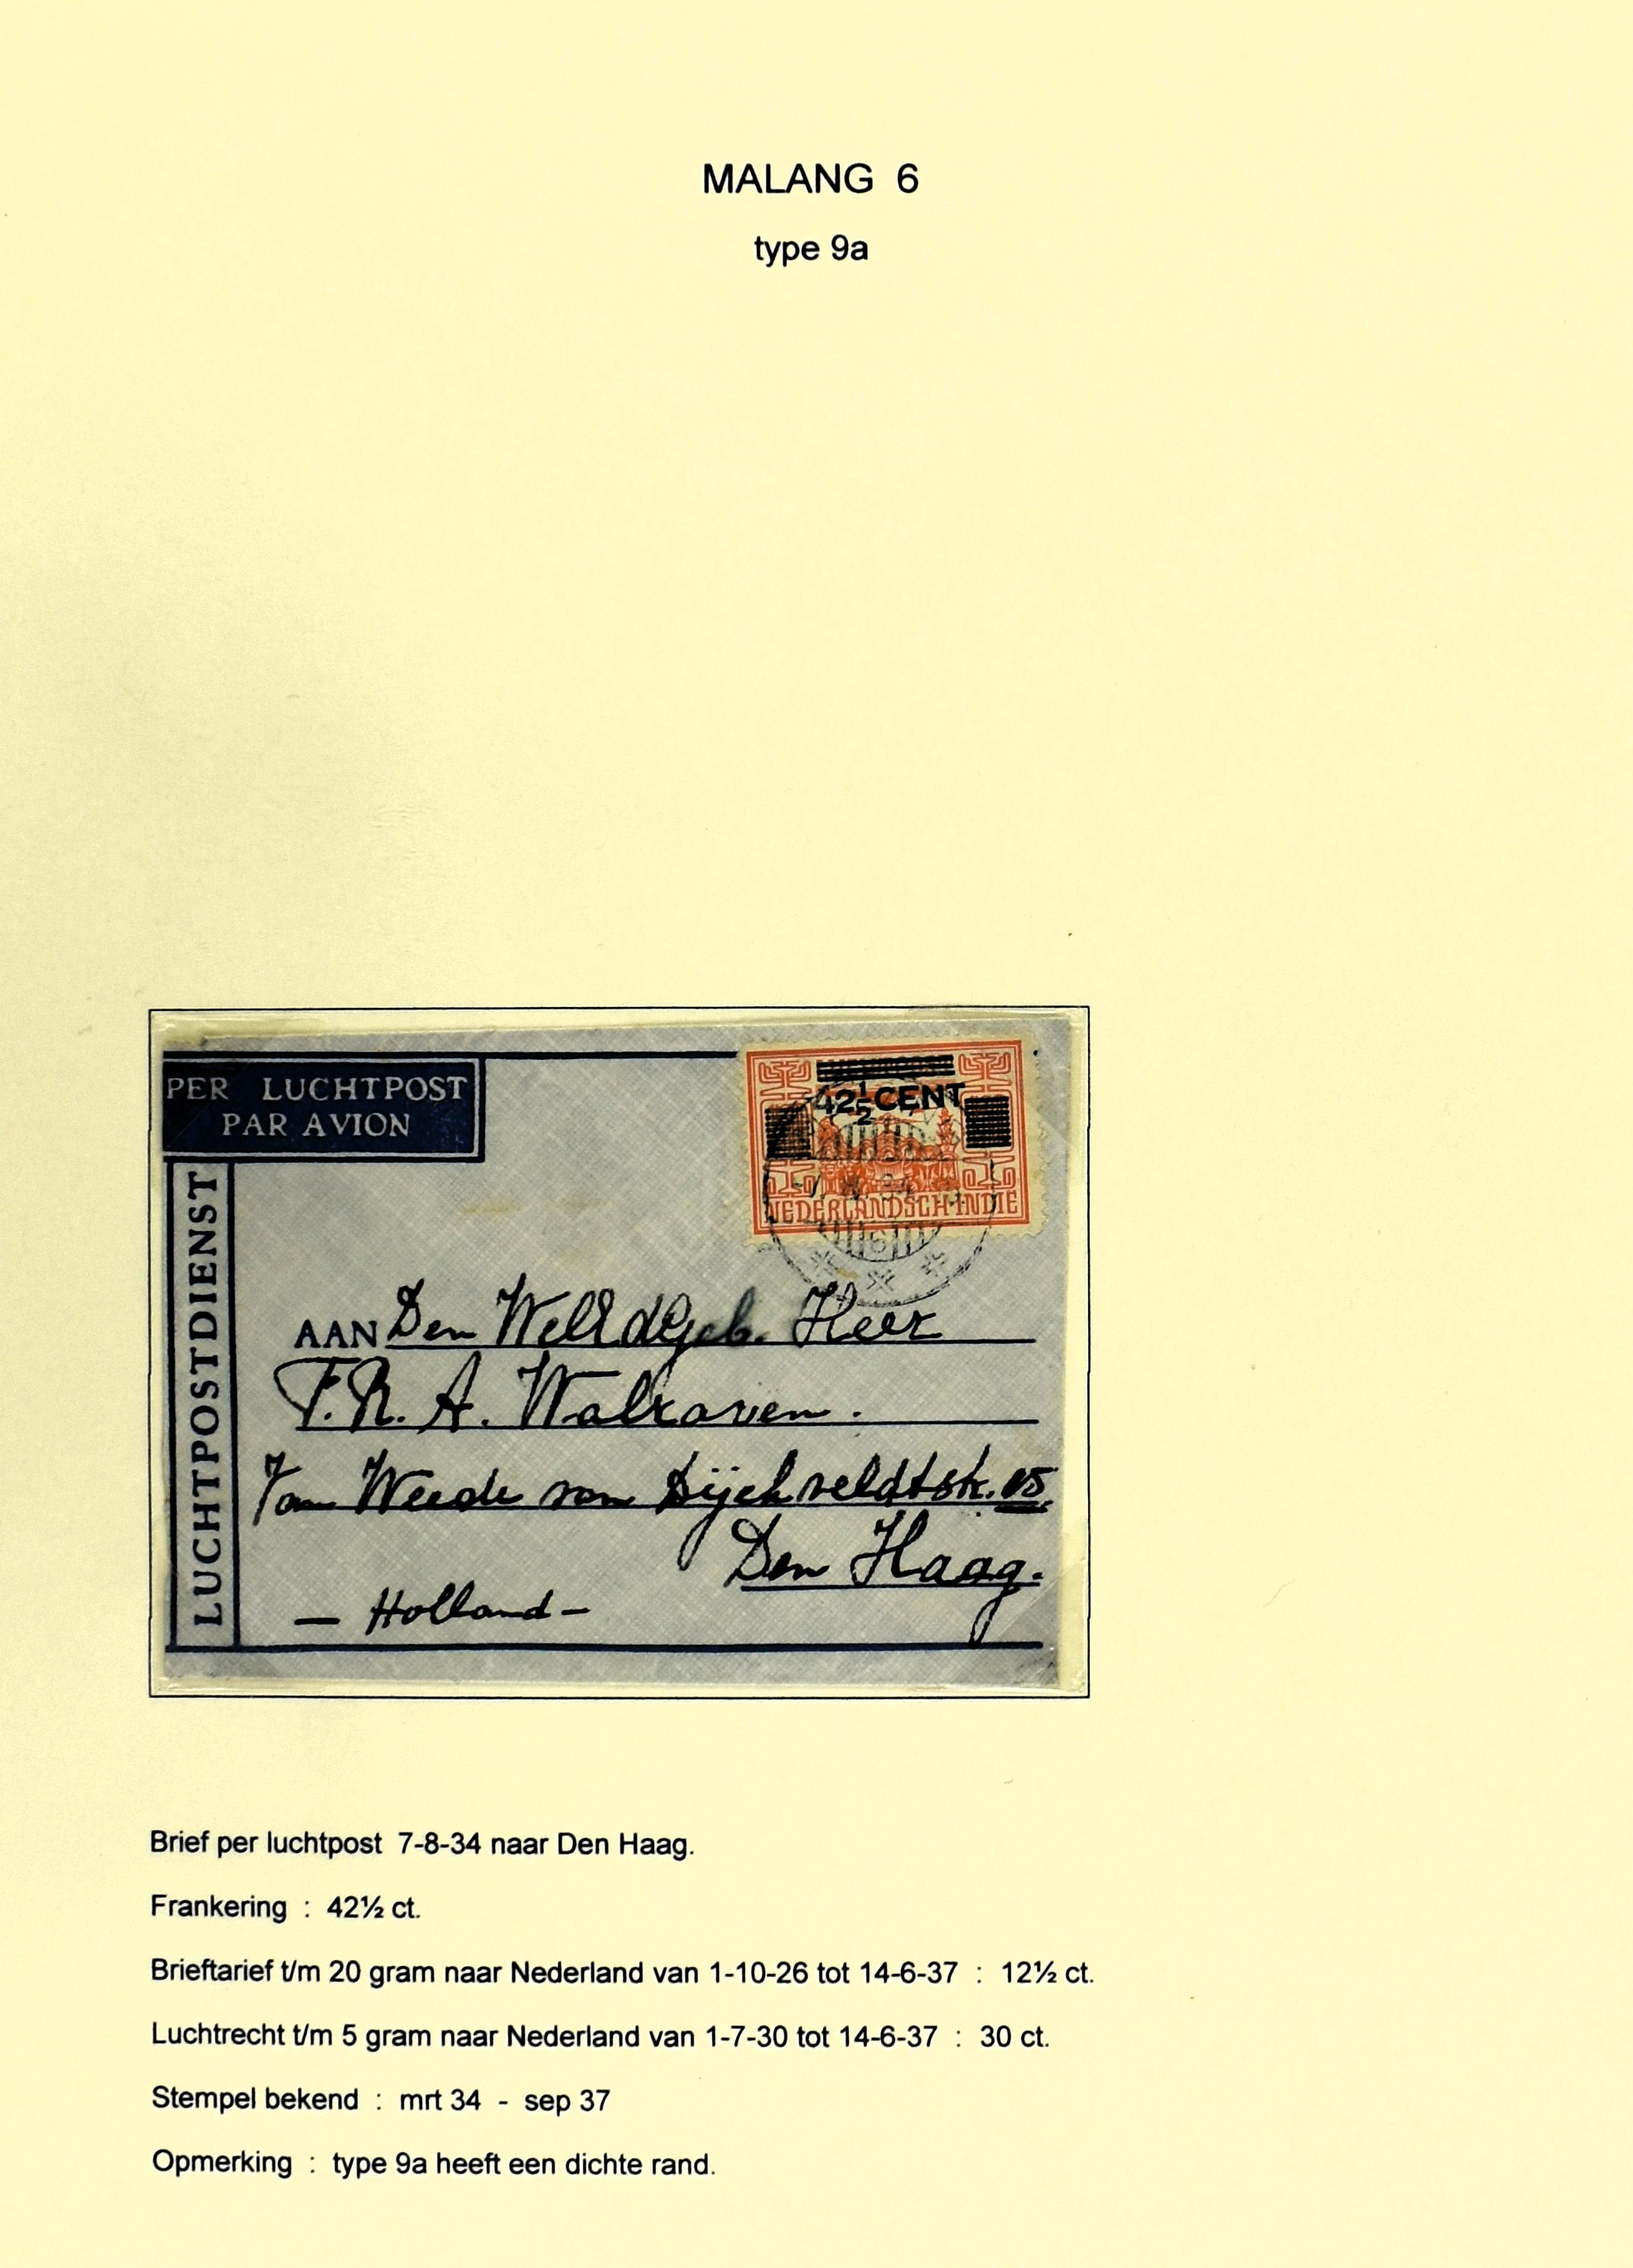 MALANG 6
type 9a
PER LUCHTPOST
PAR AVION
LUCHTPOSTDIENST
42½ CENT
NEDERLANDSCH INDIE
6
AAN Den WelEdGeb. Heer
F.R. A. Walraven.
Van Weede van Dijckveldtstr.
Den Haag.
— Holland —
Brief per luchtpost 7-8-34 naar Den Haag.
Frankering : 42½ ct.
Brieftarief t/m 20 gram naar Nederland van 1-10-26 tot 14-6-37 : 12½ ct.
Luchtrecht t/m 5 gram naar Nederland van 1-7-30 tot 14-6-37 : 30 ct.
Stempel bekend : mrt 34 - sep 37
Opmerking : type 9a heeft een dichte rand.